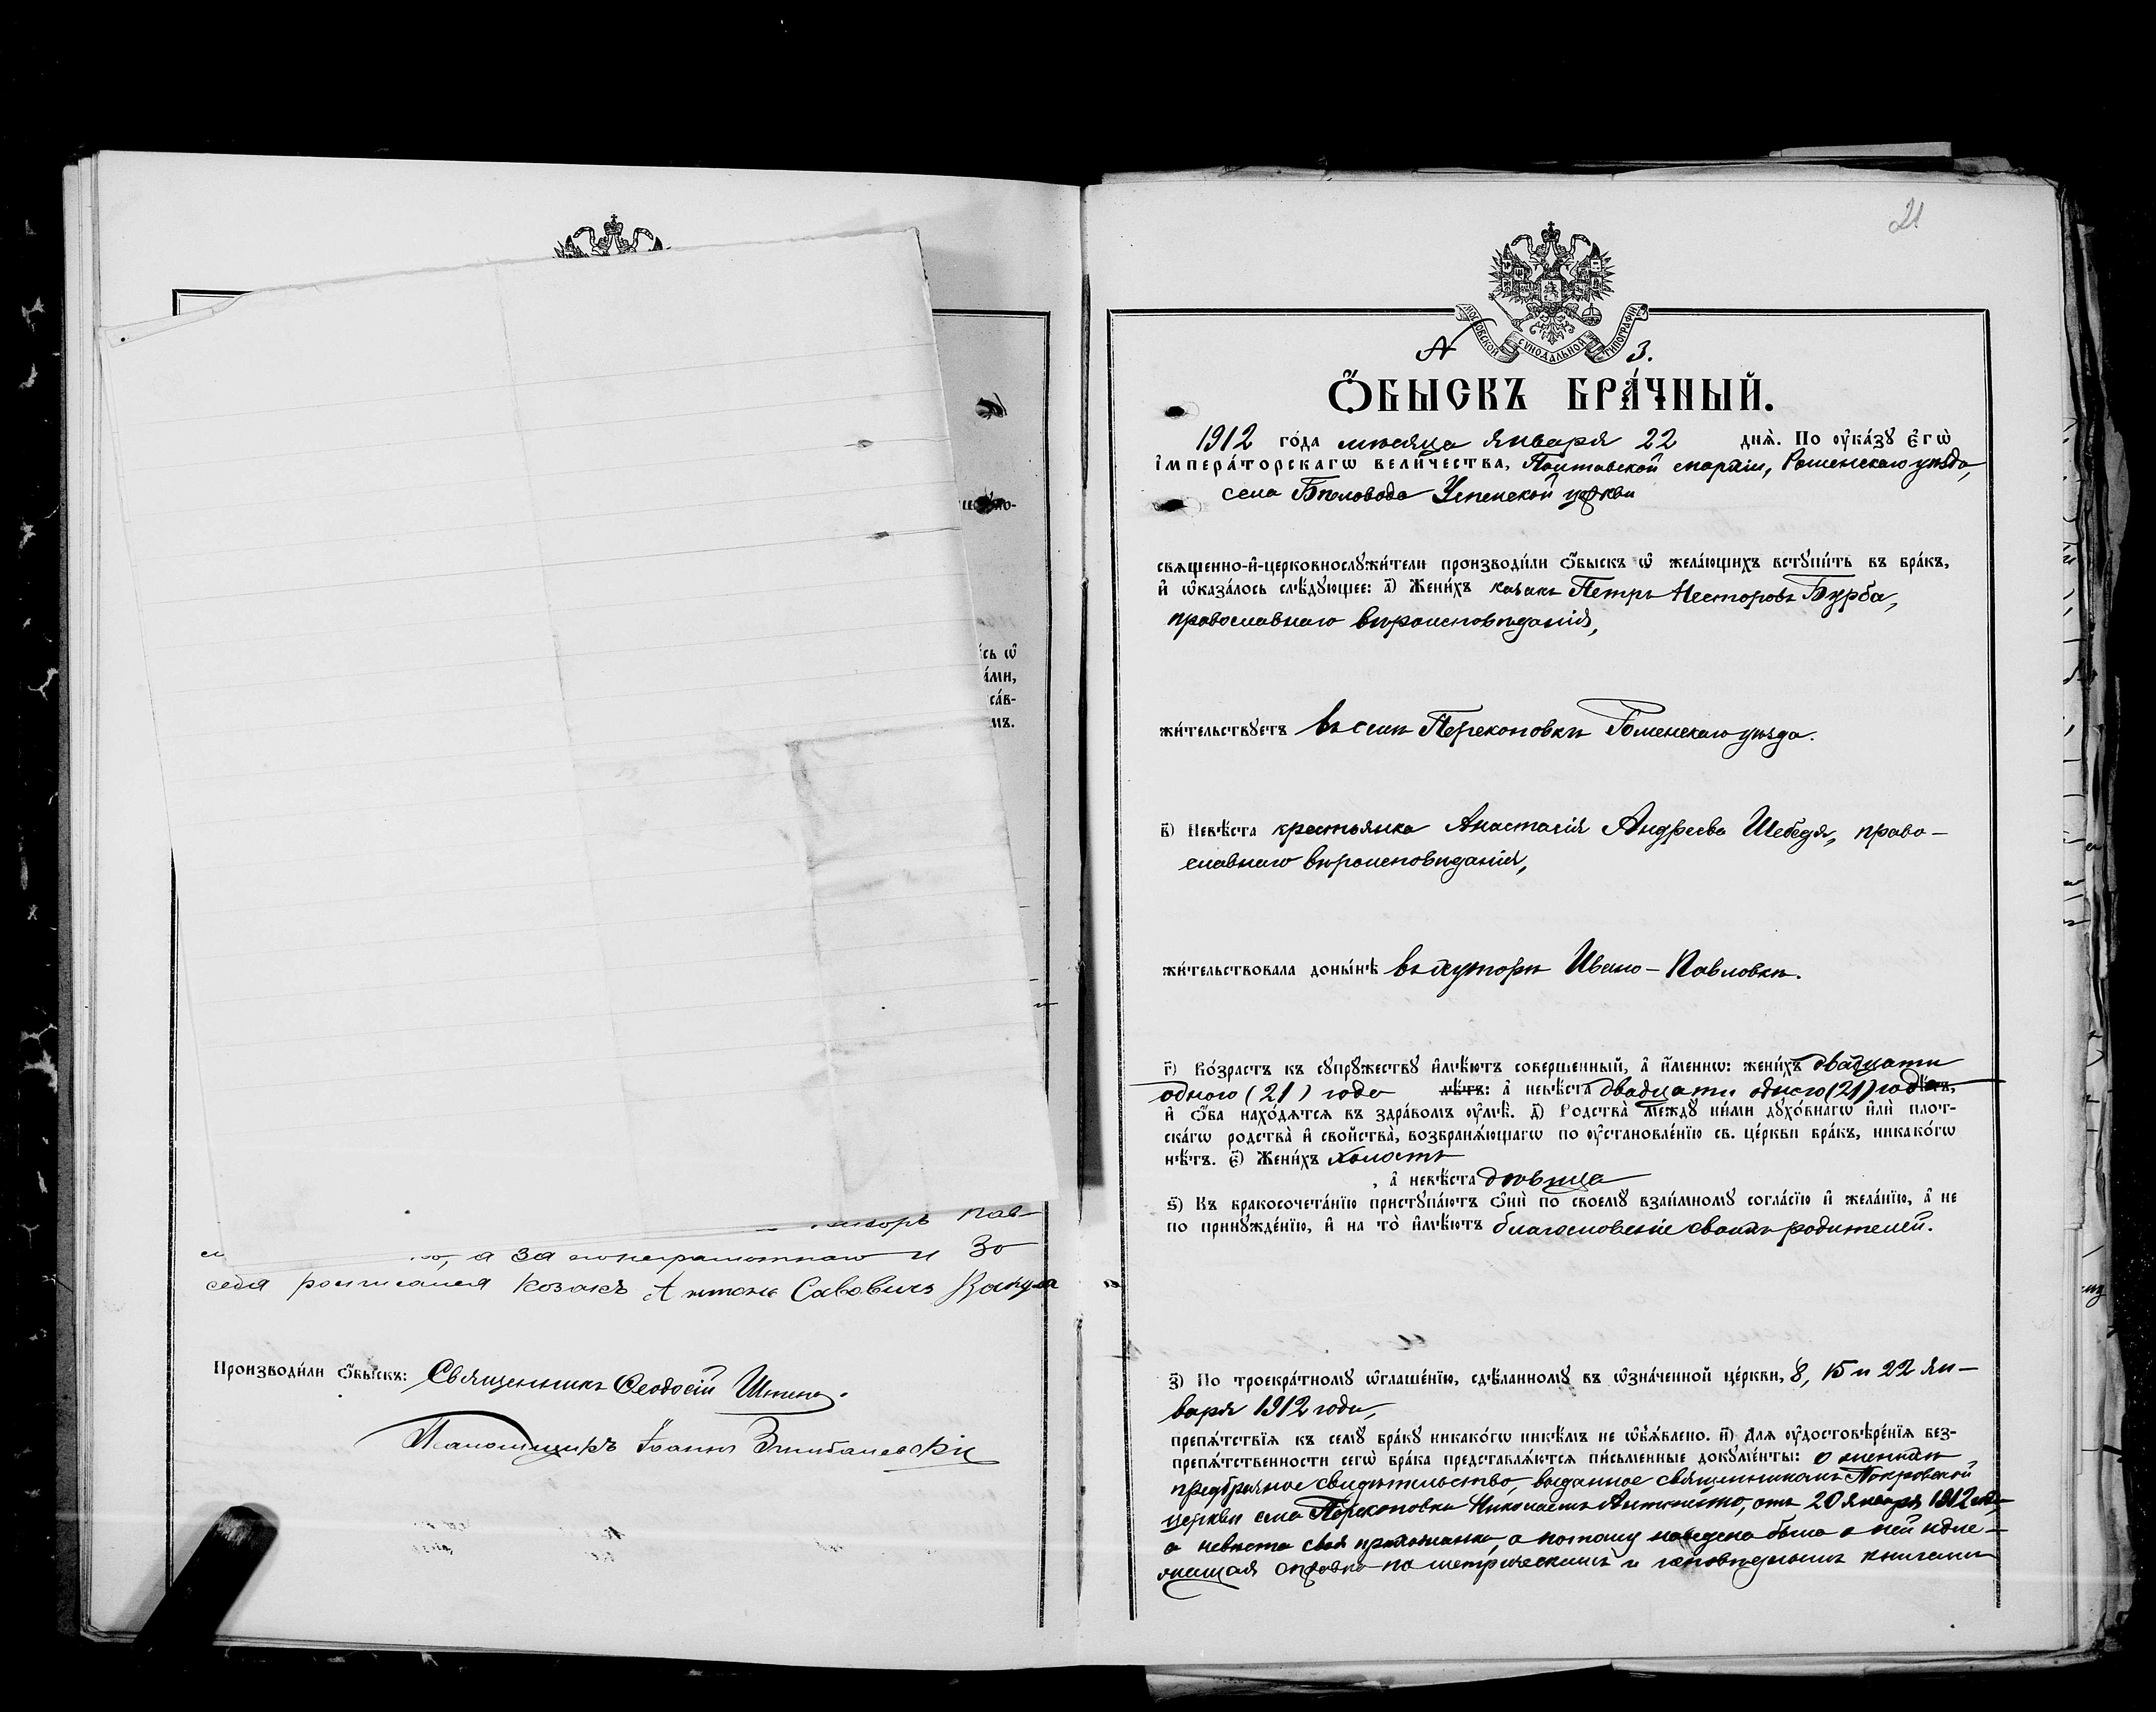 сь ѡ҆
а́ми,
са́в-
мъ.
а за
и за
себя росписался козакъ Антонъ Савовичъ
Производи́ли ѻ҆́быскъ: Священникъ Ѳеодосій
Псаломщикъ Іоаннъ
21
МОСКОВСКОЙ СѴНОДАЛЬНОЙ ТИПОГРАФІИ
№ 3.
Ѻ҆́БЫСКЪ БРА́ЧНЫЙ.
1912 го́да мѣсяца января 22 днѧ̀. По ᲂу҆ка́зꙋ є҆гѡ̀
і҆мпера́торскагѡ вели́чества, Полтавской епархіи, Роменскаго уѣзда,
села Бѣловода Успенской церкви
свѧщенно-и҆-церковнослꙋжи́тели производи́ли ѻ҆́быскъ ѡ҆ жела́ющихъ встꙋпи́ть въ бра́къ,
и҆ ѡ҆каза́лось слѣ́дꙋющее: а҃) Жени́хъ казакъ Петръ Несторовъ Бурба,
православнаго вѣроисповѣданія,
жи́тельствꙋетъ въ селѣ Перекоповкѣ Роменскаго уѣзда.
в҃) Невѣ́ста крестьянка Анастасія Андреева Шебедя, право-
славнаго вѣроисповѣданія,
жи́тельствовала доны́нѣ въ хуторѣ Ивано-Павловкѣ.
г҃) Во́зрастъ къ сꙋпрꙋ́жествꙋ и҆мѣ́ютъ соверше́нный, а҆ и҆́меннѡ: жени́хъ двадцати
одного (21) года лѣ́тъ: а҆ невѣ́ста двадцати одного (21) года лѣ́тъ,
и҆ ѻ҆́ба нахо́дѧтсѧ въ здра́вомъ ᲂу҆мѣ̀. д҃) Родства̀ междꙋ ни́ми дꙋхо́внагѡ и҆лѝ плот-
ска́гѡ родства̀ и҆ сво́йства̀, возбранѧ́ющагѡ по ᲂу҆становле́нїю св. це́ркви бра́къ, никако́гѡ
нѣ́тъ. є҃) Жени́хъ холостъ
, а҆ невѣ́ста дѣвица
ѕ҃) Къ бракосочета́нїю пристꙋпа́ютъ ѻ҆нѝ по своемꙋ̀ взаи́мномꙋ согла́сїю и҆ жела́нїю, а҆ не
по принꙋжде́нїю, и҆ на то̀ и҆мѣ́ютъ благословеніе своихъ родителей.
з҃) По троекра́тномꙋ ѡ҆глаше́нїю, сдѣ́ланномꙋ въ ѡ҆зна́ченной це́ркви, 8, 15 и 22 ян-
варя 1912 года,
препѧ́тствїѧ къ семꙋ̀ бра́кꙋ никако́гѡ никѣ́мъ не ѡ҆б̾ѧ́влено. и҃) Для ᲂу҆достовѣре́нїѧ без-
препѧ́тственности сегѡ̀ бра́ка представлѧ́ютсѧ пи́сьменные докꙋме́нты: о женихѣ
предбрачное свидѣтельство, выданное священникомъ Покровской
церкви села Перекоповки Николаемъ отъ 20 января 1912 года,
а невѣста своя прихожанка, а потому наведена была о ней надле-
жащая справка по метрическимъ и исповѣднымъ книгамъ